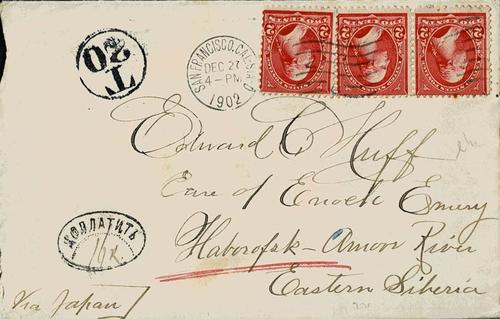 20
T
SAN FRANCISCO, CAL.
DEC 27
4-PM
1902
D
Edward C Huff
Care of Enoch Emery
Haborofsk - Amoor River
Eastern Siberia
ДОПЛАТИТЬ
16 к.
Via Japan